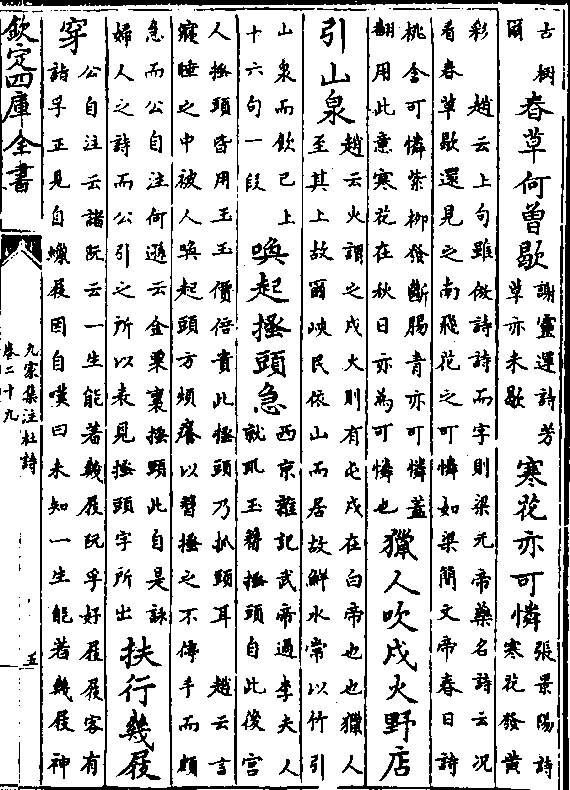 古柄
爾
春草何曾歇
謝靈運詩芳
草亦未歇
寒花亦可憐
張景陽詩
寒花發黄
彩　趙云上句雖倣詩詩而字則梁元帝藥名詩云况
看春草歇還見之南飛花之可憐如梁簡文帝春日詩
桃含可憐紫柳發斷腸青亦可憐蓋
翻用此意寒花在秋日亦為可憐也
獵人吹戍火野店
引山泉
趙云火謂之戍火則有屯戍在白帝也也獵人
至其上故爾峽民依山而居故鮮水常以竹引
山泉而飲已上
十六句一段
喚起搔頭急
西京雜記武帝過李夫人
就取玉簪搔頭自此後宫
人搔頭皆用玉玉價倍貴此搔頭乃扒頭耳　趙云言
寢睡之中被人喚起頭方煩癢以簪搔之不停手而頗
急而公自注何遜云金粟裹搔頭此自是詠
婦人之詩而公引之所以表見搔頭字所出
扶行幾屐
穿
公自注云諸阮云一生能著幾屐阮孚好屐屐客有
詩孚正見自蠟屐因自嘆曰未知一生能著幾屐神
欽定四庫全書
九家集注杜詩
卷二十九
五